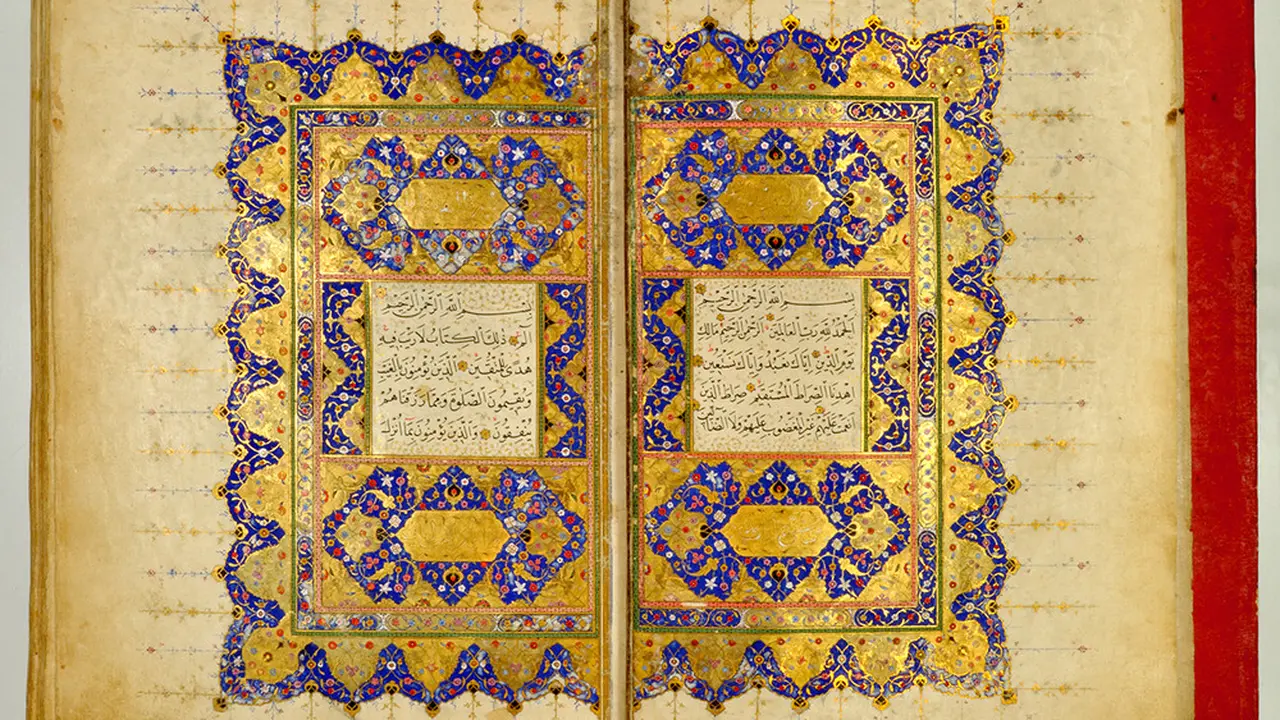 بسم الله الرحمن الرحيم
الحمد لله رب العالمين الرحمن الرحيم مالك
يوم الدين اياك نعبد واياك نستعين
اهدنا الصراط المستقيم صراط الذين
انعمت عليهم غير المغضوب عليهم ولا الضالين
بسم الله الرحمن الرحيم
الم ذلك الكتاب لا ريب فيه
هدى للمتقين الذين يؤمنون بالغيب
ويقيمون الصلوة ومما رزقناهم
ينفقون والذين يؤمنون بما انزل